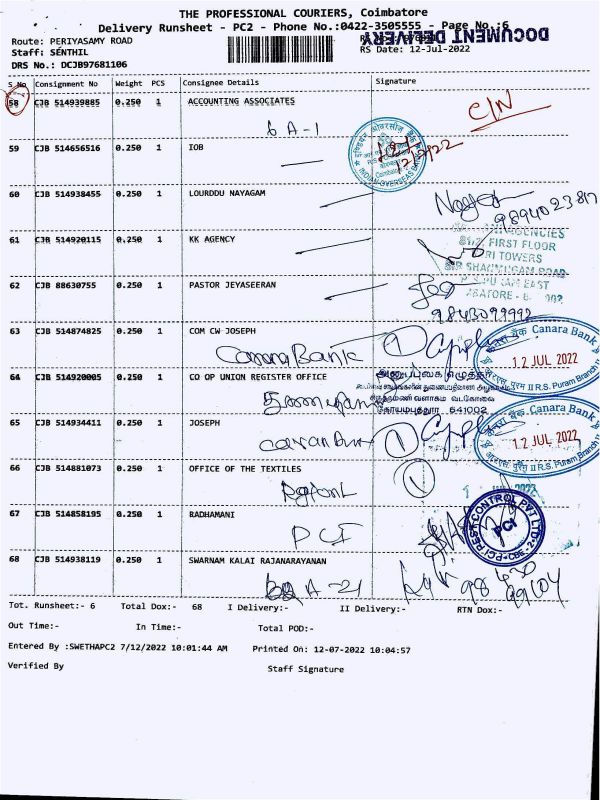 THE PROFESSIONAL COURIERS, Coimbatore
Delivery Runsheet - PC2 - Phone No.:0422-3505555 - Page No.:6
DOCUMENT DELIVERY
Route: PERIYASAMY ROAD
Staff: SENTHIL
RS Date: 12-Jul-2022
DRS No.: DCJB97681106
S.No Consignment No Weight PCS Consignee Details Signature
58 CJB 514939885 0.250 1 ACCOUNTING ASSOCIATES C/N
6 A-1
59 CJB 514656516 0.250 1 IOB
12/7/22
INDIAN OVERSEAS BANK
60 CJB 514938455 0.250 1 LOURDDU NAYAGAM
61 CJB 514920115 0.250 1 KK AGENCY
AGENCIES
FIRST FLOOR
TOWERS
62 CJB 88630755 0.250 1 PASTOR JEYASEERAN
9843099992
63 CJB 514874825 0.250 1 COM CW JOSEPH
Canara Bank
1
केनरा बैंक Canara Bank
12 JUL 2022
II R.S. Puram Branch
64 CJB 514920005 0.250 1 CO OP UNION REGISTER OFFICE
வளாகம் வடகோவை
கோயமுத்தூர் 641002
65 CJB 514934411 0.250 1 JOSEPH
1
केनरा बैंक Canara Bank
12 JUL 2022
II R.S. Puram Branch
66 CJB 514881073 0.250 1 OFFICE OF THE TEXTILES
1
67 CJB 514858195 0.250 1 RADHAMANI
PCI
PCI PEST CONTROL PVT LTD
PCI
CBE-2
68 CJB 514938119 0.250 1 SWARNAM KALAI RAJANARAYANAN
A-21
Tot. Runsheet:- 6 Total Dox:- 68 I Delivery:- II Delivery:- RTN Dox:-
Out Time:- In Time:- Total POD:-
Entered By :SWETHAPC2 7/12/2022 10:01:44 AM Printed On: 12-07-2022 10:04:57
Verified By Staff Signature